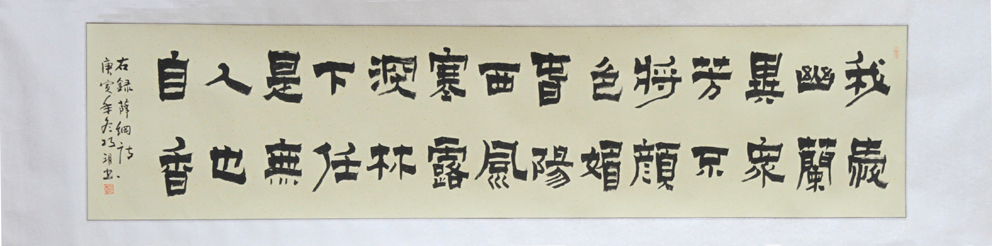 我愛
幽蘭
異衆
芳不
将顔
色媚
春陽
西風
寒露
深林
下任
是無
人也
自香
右録薛綱詩
庚寅年冬